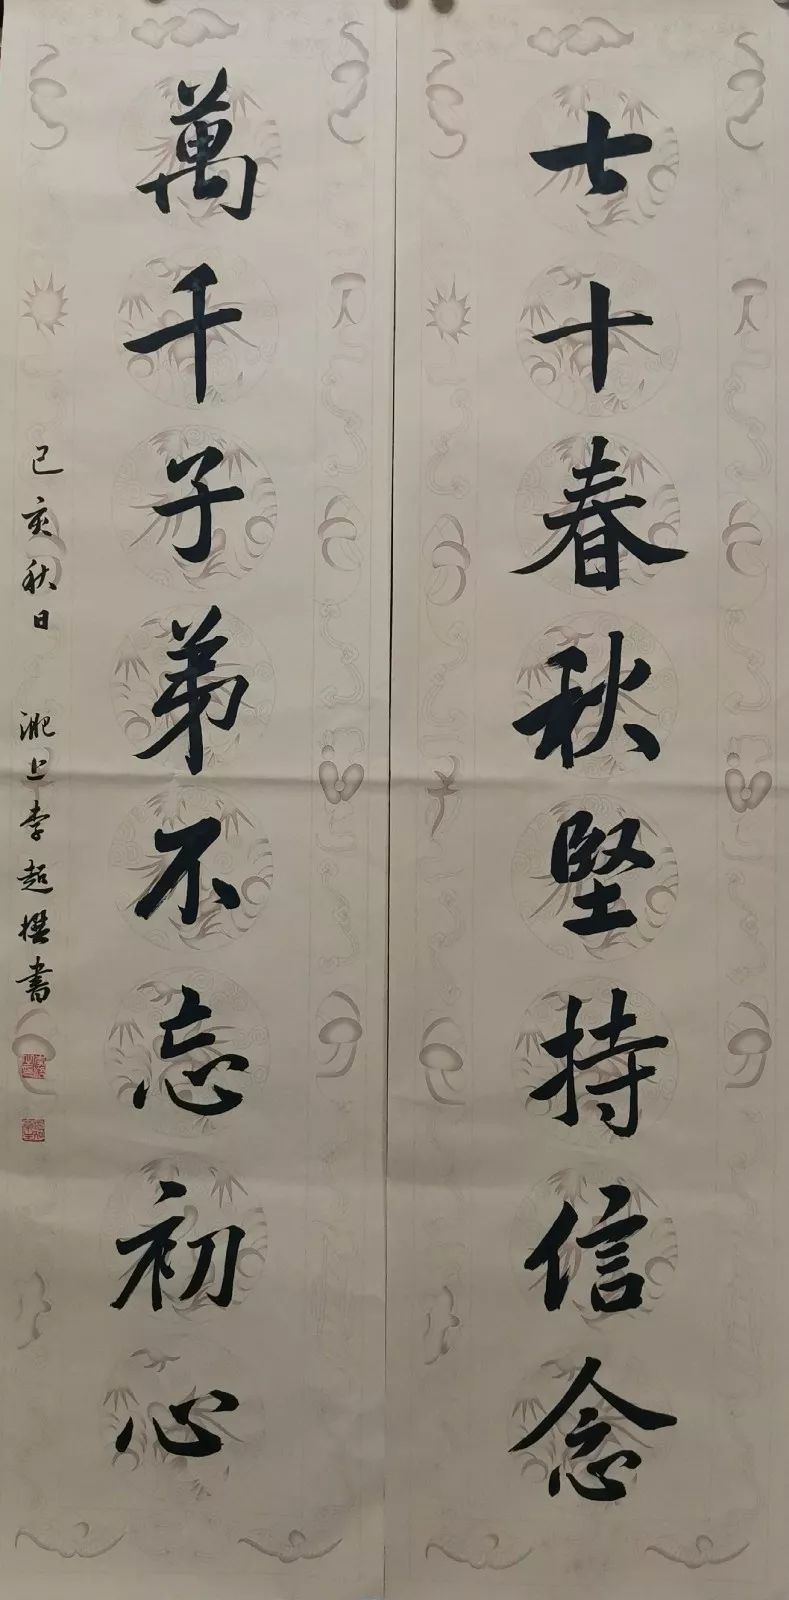 七十春秋堅持信念
萬千子弟不忘初心
己亥秋日 淝上李超撰書